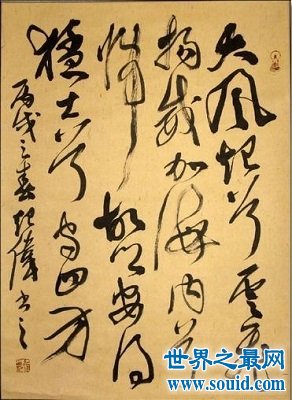 大風起兮雲飛
揚威加海内兮
歸故鄉安得
猛士兮守四方
丙戌之春起偉書之
世界之最网
www.souid.com